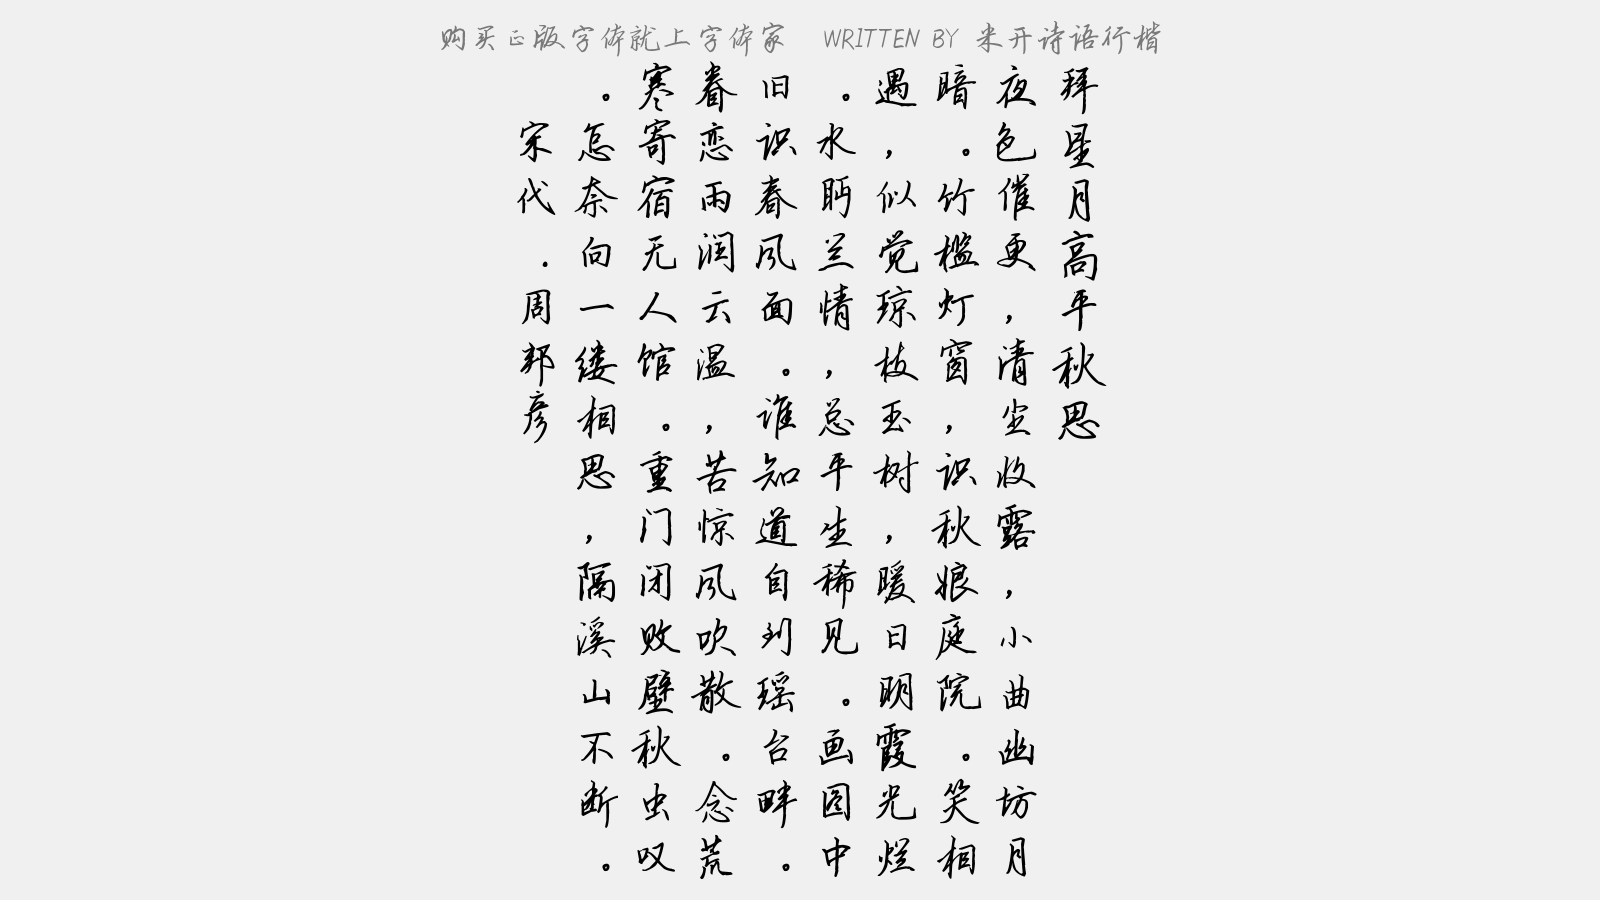 购买正版字体就上字体家 WRITTEN BY 米开诗语行楷
拜星月高平秋思
夜色催更，清尘收露，小曲幽坊月
暗。竹槛灯窗，识秋娘庭院。笑相
遇，似觉琼枝玉树，暖日明霞光烂
。水眄兰情，总平生稀见。画图中
旧识春风面。谁知道自到瑶台畔。
眷恋雨润云温，苦惊风吹散。念荒
寒寄宿无人馆。重门闭败壁秋虫叹
。怎奈向一缕相思，隔溪山不断。
宋代.周邦彦